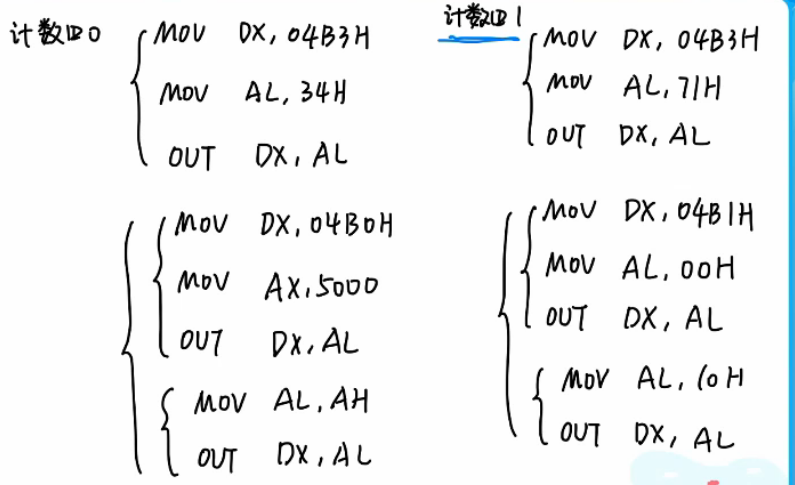 计数器0
MOV DX, 04B3H
MOV AL, 34H
OUT DX, AL
MOV DX, 04B0H
MOV AX, 5000
OUT DX, AL
MOV AL, AH
OUT DX, AL
计数器1
MOV DX, 04B3H
MOV AL, 71H
OUT DX, AL
MOV DX, 04B1H
MOV AL, 00H
OUT DX, AL
MOV AL, 10H
OUT DX, AL